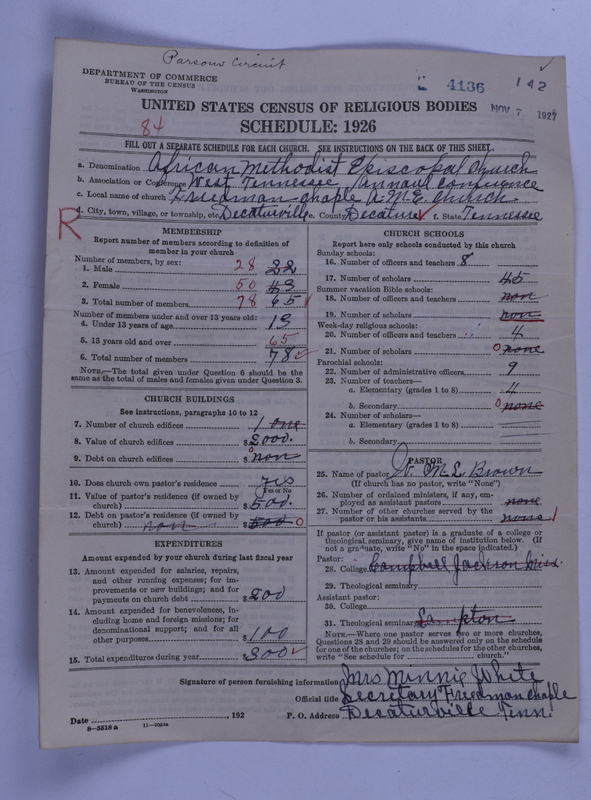 Parsons Circuit
DEPARTMENT OF COMMERCE
BUREAU OF THE CENSUS
WASHINGTON
4136
142
NOV 7 1927
UNITED STATES CENSUS OF RELIGIOUS BODIES
84
SCHEDULE: 1926
FILL OUT A SEPARATE SCHEDULE FOR EACH CHURCH. SEE INSTRUCTIONS ON THE BACK OF THIS SHEET.
a. Denomination African Methodist Episcopal Church
b. Association or Conference West Tennessee Annual Confrence
c. Local name of church Friedman chaple A.M.E. Church
R
d. City, town, village, or township, etc. Decaturville e. County Decature f. State Tennessee
MEMBERSHIP
Report number of members according to definition of
member in your church
Number of members, by sex:
1. Male 28 22
2. Female 50 43
3. Total number of members 78 65
Number of members under and over 13 years old:
4. Under 13 years of age 13
5. 13 years old and over 65
6. Total number of members 78
NOTE.—The total given under Question 6 should be the
same as the total of males and females given under Question 3.
CHURCH BUILDINGS
See instructions, paragraphs 10 to 12
7. Number of church edifices 1 one
8. Value of church edifices $2000.
9. Debt on church edifices $ 0 non
10. Does church own pastor's residence yes
Yes or No
11. Value of pastor's residence (if owned by
church) $500.
12. Debt on pastor's residence (if owned by
church) non $500 0
EXPENDITURES
Amount expended by your church during last fiscal year
13. Amount expended for salaries, repairs,
and other running expenses; for im-
provements or new buildings; and for
payments on church debt $200
14. Amount expended for benevolences, in-
cluding home and foreign missions; for
denominational support; and for all
other purposes $100
15. Total expenditures during year $300
CHURCH SCHOOLS
Report here only schools conducted by this church
Sunday schools:
16. Number of officers and teachers 8
17. Number of scholars 45
Summer vacation Bible schools:
18. Number of officers and teachers non
19. Number of scholars non
Week-day religious schools:
20. Number of officers and teachers 4
21. Number of scholars 0 none
Parochial schools:
22. Number of administrative officers 9
23. Number of teachers—
a. Elementary (grades 1 to 8) 4
b. Secondary 0 none
24. Number of scholars—
a. Elementary (grades 1 to 8)
b. Secondary
PASTOR
25. Name of pastor M L Brown
(If church has no pastor, write "None")
26. Number of ordained ministers, if any, em-
ployed as assistant pastors none
27. Number of other churches served by the
pastor or his assistants none 1
If pastor (or assistant pastor) is a graduate of a college or
theological seminary, give name of institution below. (If
not a graduate, write "No" in the space indicated.)
Pastor:
28. College Campbell Jackson Miss.
29. Theological seminary
Assistant pastor:
30. College
31. Theological seminary Lampton
NOTE.—Where one pastor serves two or more churches,
Questions 28 and 29 should be answered only on the schedule
for one of the churches; on the schedules for the other churches,
write "See schedule for church."
Signature of person furnishing information Mrs Minnie White
Official title Secretary Friedman chaple
Date , 192 P. O. Address Decaturville Tenn.
8—5518a 11—9024a